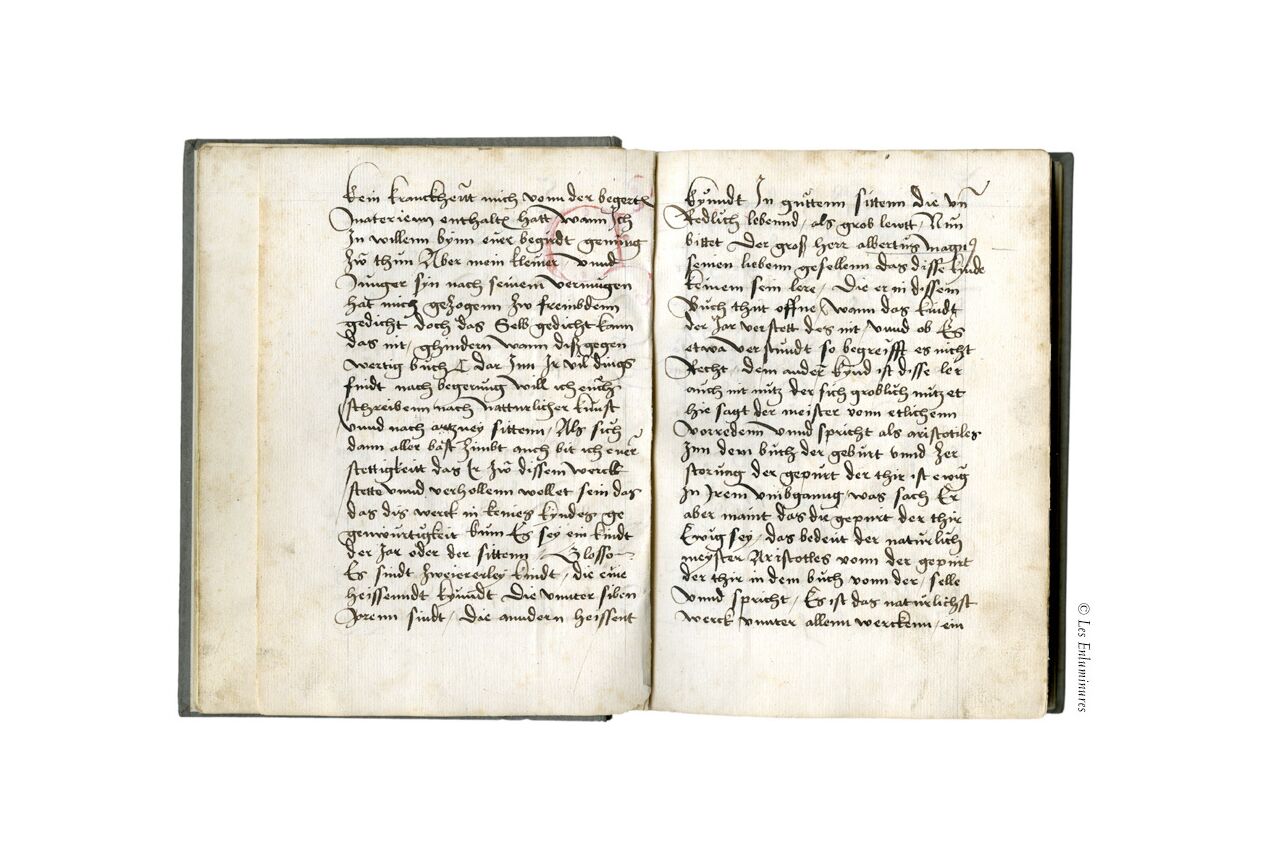 kein kranckheitt mich vonn der begertē
materienn enthaltē hatt wann ich
In willenn bynn euer begirdt genūg
zw thun Aber mein kleiner vnnd
Junger syn nach seinem vermugen
hat mich gezogenn zw freimbdenn
gedicht doch das Selb gedicht kann
das nit ghindern wann diß gegen
wertig buch dar Inn Ir vil dings
findt nach begerung will ich euch
schreibenn nach natturlicher kunst
vnnd nach artzney sittenn, Als sich
dann aller bast Zimbt auch bit ich euer
stettigkeitt das Er zw dissem werck
stette vnnd verhollenn wollet sein das
das dis werck in keines kyndes ge
genwurtigkeit kum Es sey ein kindt
der Jar oder der sittenn Glosso
Es sindt zweiererley kindt, die eine
heissenndt kynndt die vnnter siben
Jrenn sindt, die anndern heissent
kynndt In guttenn sittenn die vn
Redlich lebennd, als grob lewtt, Nun
bittet der groß herr albertus magnꝰ
seinen liebenn gesellenn das disse kinde
keinem sein lere, Die er in dissem
Buch thut offne, wann das kindt
der Jar verstett des nit, vnnd ob Es
etwa verstundt so begreifft es nicht
Recht, dem ander kynd ist disse ler
auch nit nutz der sich groblich nutzet
hie sagt der meister vonn etlichenn
vorredenn vnnd spricht als aristotiles
Inn dem buch der geburt vnnd Zer
storung der gepurt der thir ist ewig
In Irem vmbganng, was sach Er
aber maint das die gepurt der thir
Ewig sey, das bedeut der naturlich
meyster Aristotles vonn der gepurt
der thir in dem buch vonn der, selle
vnnd spricht, Es ist das naturlichst
werck vnnter allenn werckenn, ein
© Les Enluminures